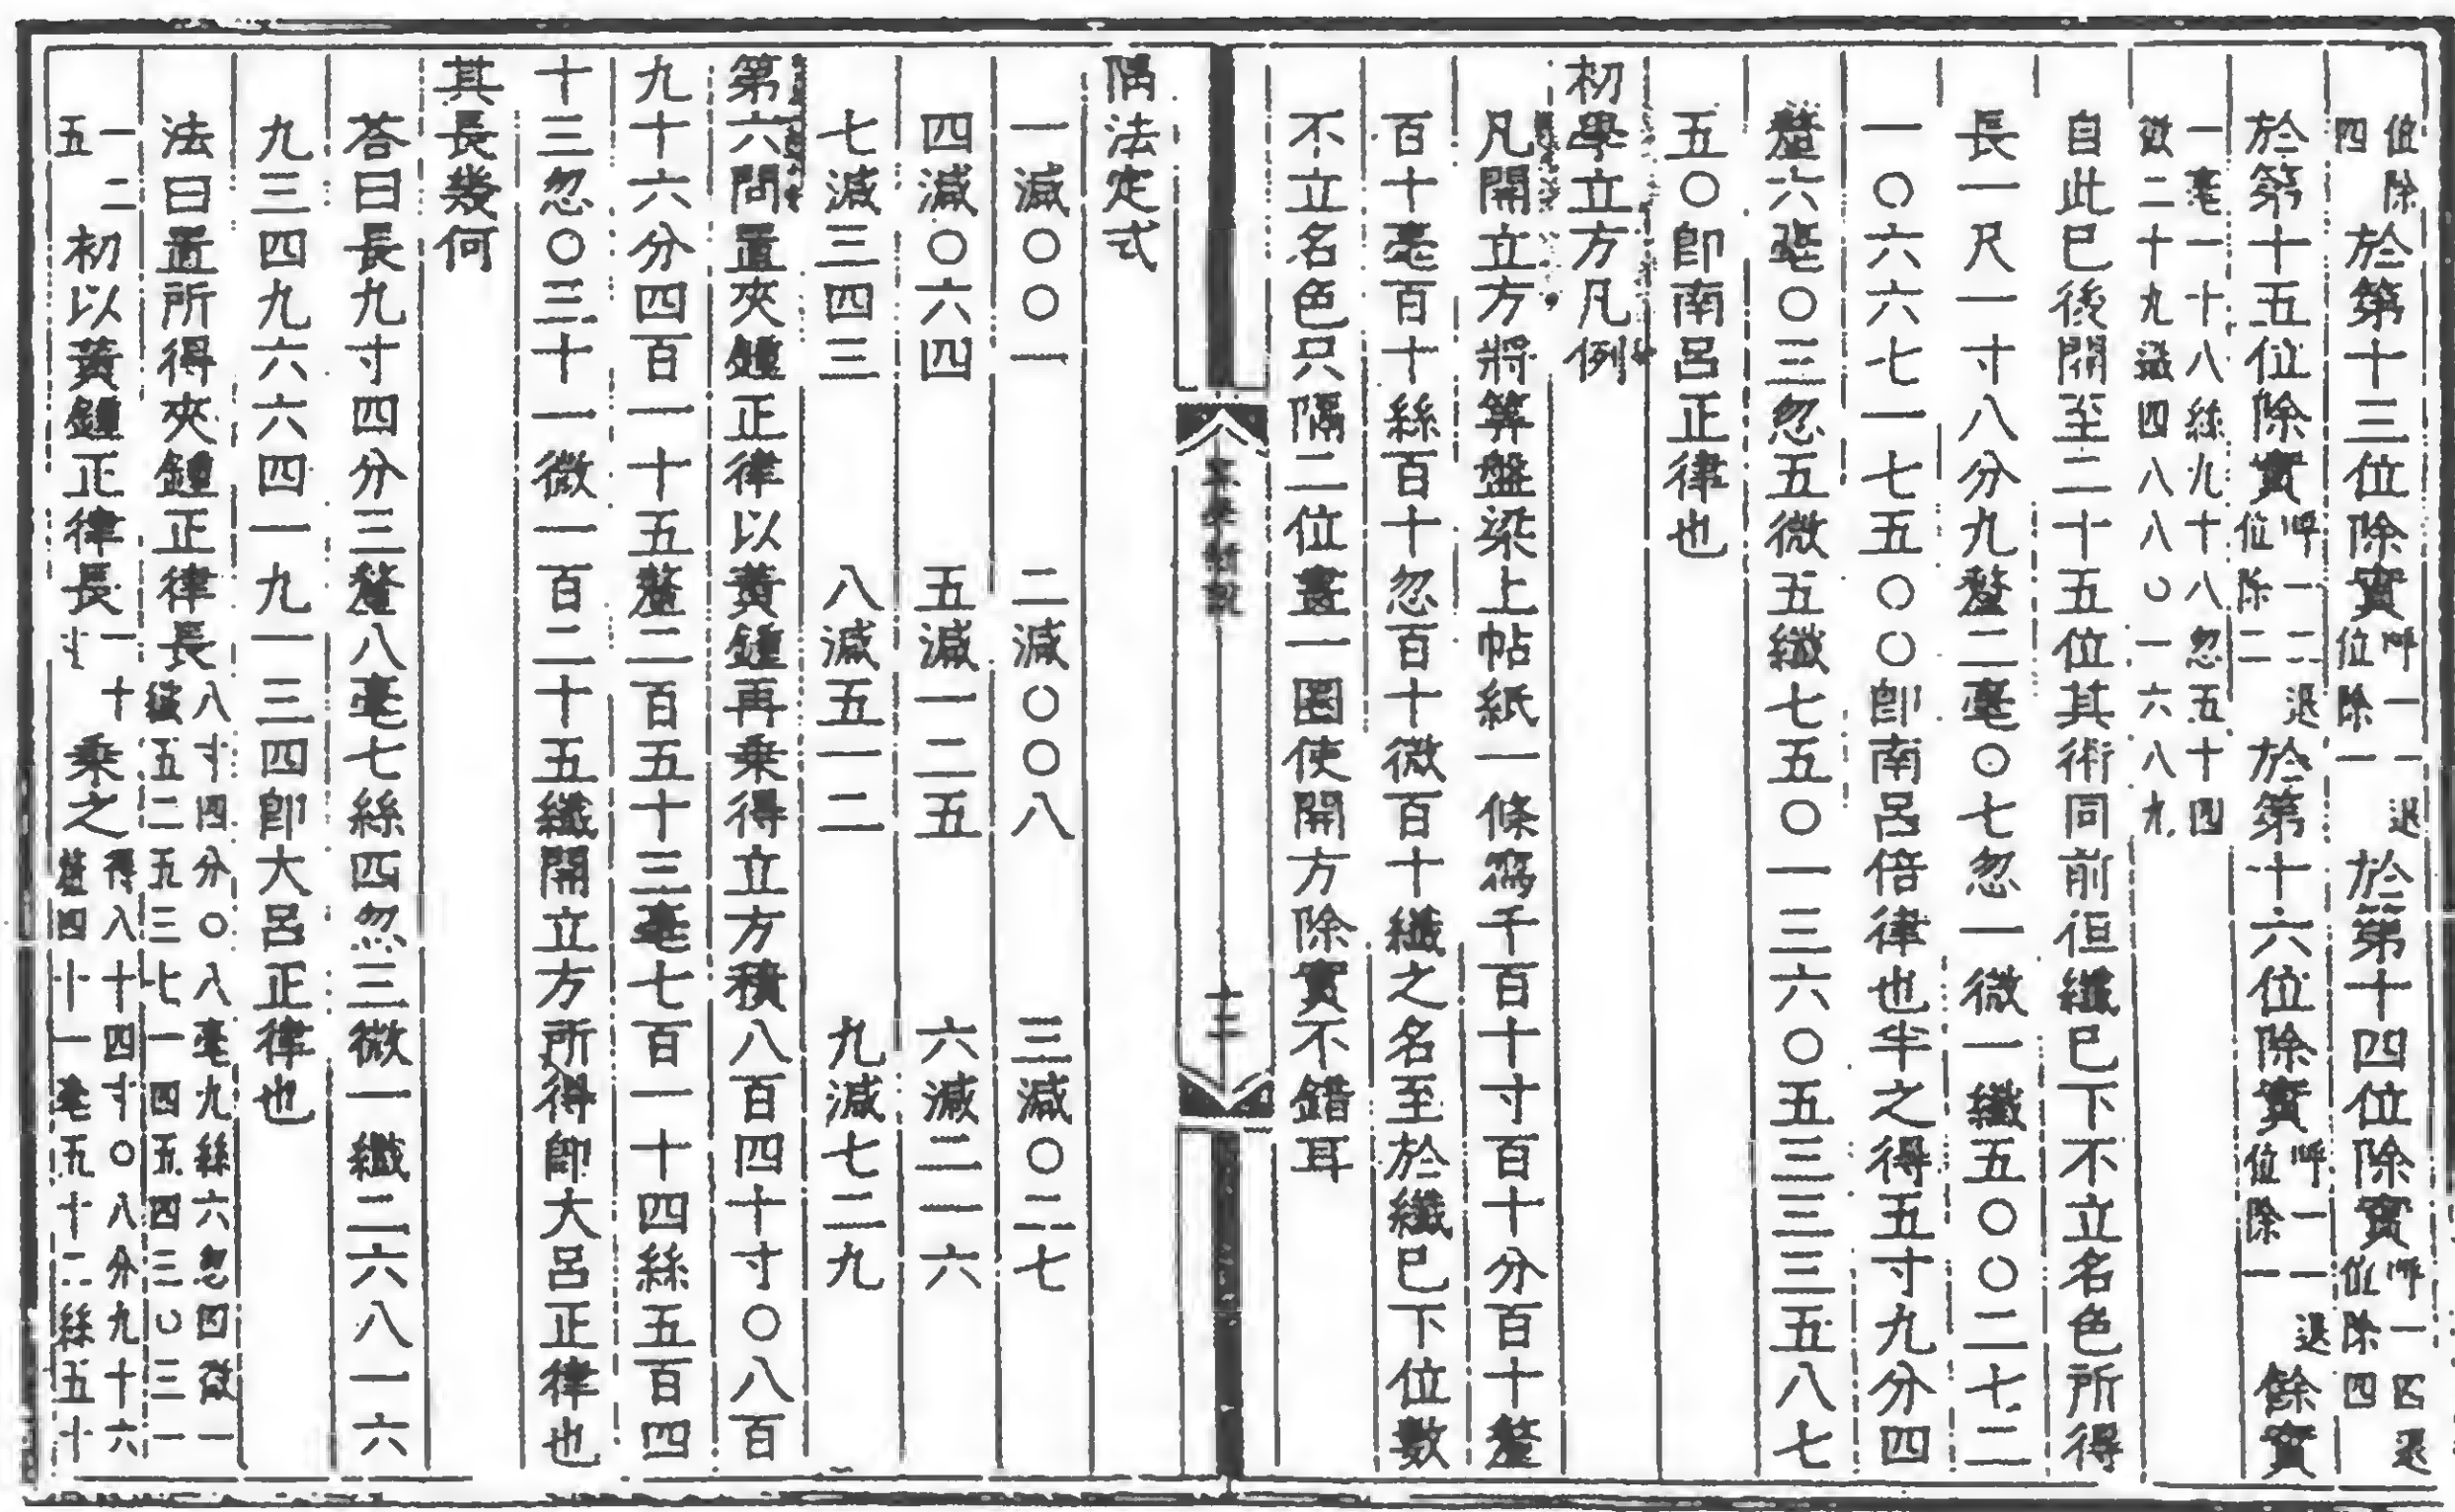 位除四於第十三位除實呼一一退位除一於第十四位除實呼一四退位除四
於第十五位除實呼一二退位除二於第十六位除實呼一一退位除一餘實
一毫一十八絲九十八忽五十四微二十九纖四八八〇一六八九
自此已後開至二十五位其術同前但纖已下不立名色所得
長一尺一寸八分九釐二毫〇七忽一微一纖五〇〇二七二
一〇六六七一七五〇〇卽南呂倍律也半之得五寸九分四
釐六毫〇三忽五微五纖七五〇一三六〇五三三三五八七
五〇卽南呂正律也
初學立方凡例
凡開立方將筭盤梁上帖紙一條寫千百十寸百十分百十釐
百十毫百十絲百十忽百十微百十纖之名至於纖已下位數
不立名色只隔二位畫一圈使開方除實不錯耳
算學新說
隅法定式
一減〇〇一　二減〇〇八　三減〇二七
四減〇六四　五減一二五　六減二一六
七減三四三　八減五一二　九減七二九
第六問置夾鐘正律以黃鐘再乘得立方積八百四十寸〇八百
九十六分四百一十五釐二百五十三毫七百一十四絲五百四
十三忽〇三十一微一百二十五纖開立方所得卽大呂正律也
其長幾何
荅曰長九寸四分三釐八毫七絲四忽三微一纖二六八一六
九三四九六六四一九一三四卽大呂正律也
法曰置所得夾鐘正律長八寸四分〇八毫九絲六忽四微一纖五二五三七一四五四三〇三一
一二五初以黃鐘正律長一十寸乘之得八十四寸〇八分九十六釐四十一毫五十二絲五十